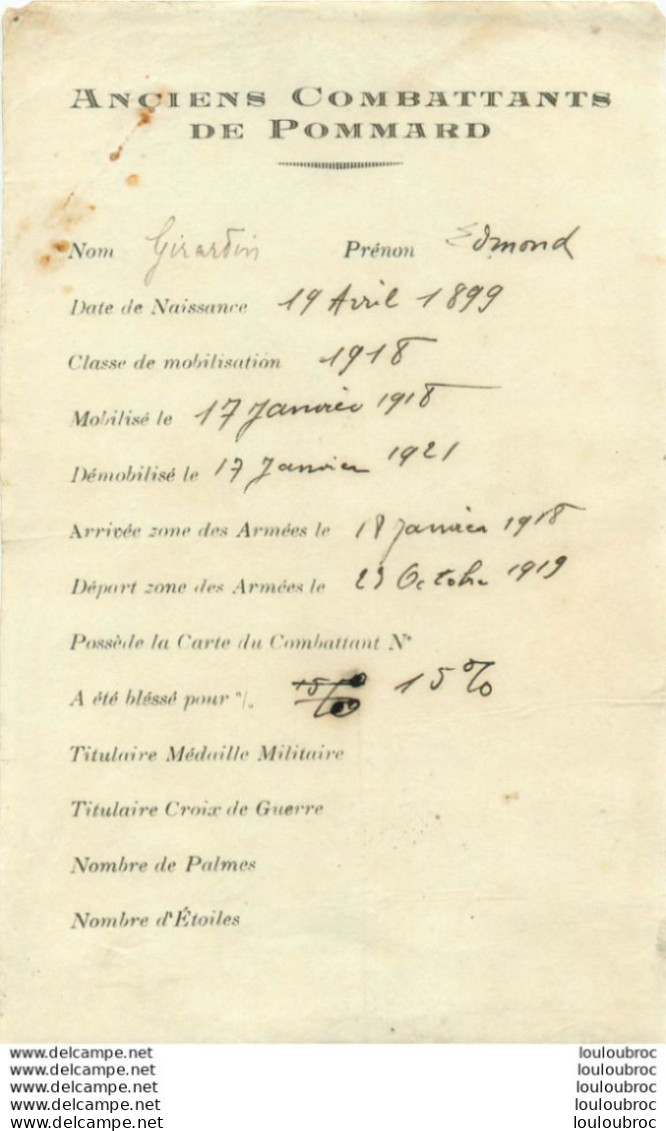 ANCIENS COMBATTANTS
DE POMMARD
Nom Girardin Prénon Edmond
Date de Naissance 19 Avril 1899
Classe de mobilisation 1918
Mobilisé le 17 Janvier 1918
Démobilisé le 17 Janvier 1921
Arrivée zone des Armées le 18 Janvier 1918
Départ zone des Armées le 23 Octobre 1919
Possède la Carte du Combattant N°
A été bléssé pour % 15% 15%
Titulaire Médaille Militaire
Titulaire Croix de Guerre
Nombre de Palmes
Nombre d'Étoiles
www.delcampe.net louloubroc
www.delcampe.net louloubroc
www.delcampe.net louloubroc
www.delcampe.net louloubroc
www.delcampe.net louloubroc